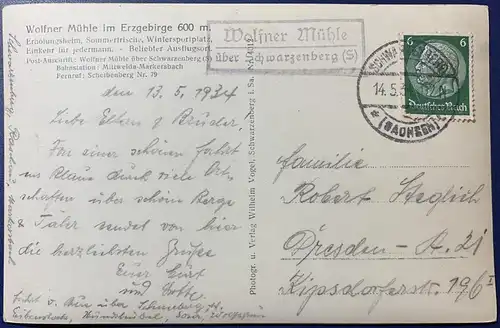 Wolfner Mühle im Erzgebirge 600 m.
Erholungsheim, Sommerfrische, Wintersportplatz,
Einkehr für jedermann. - Beliebter Ausflugsort.
Post-Anschrift: Wolfner Mühle über Schwarzenberg (S)
Bahnstation: Mittweida-Markersbach
Fernruf: Scheibenberg Nr. 79
Wolfner Mühle
über Schwarzenberg (S)
14.5.
(SACHSEN)
6
6
Deutsches Reich
den 13.5.1934
Liebe Eltern & Brüder.
Von einer schönen Fahrt
durch viele Ort-
schaften über schöne Berge
& Täler sendet von hier
die herzlichsten Grüße
Euer
und Lotte
Photogr. u. Verlag Wilhelm Vogel, Schwarzenberg i. Sa.
Familie
Robert Steglich
Dresden - A. 21
Kipsdorferstr. 196 I
über Schneeberg
Eibenstock,